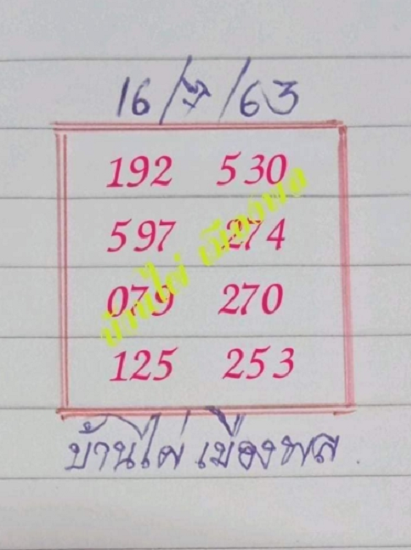 16/7/63
192 530
597 274
079 270
125 253
บ้านไผ่ เมืองพล
บ้านไผ่ เมืองพล